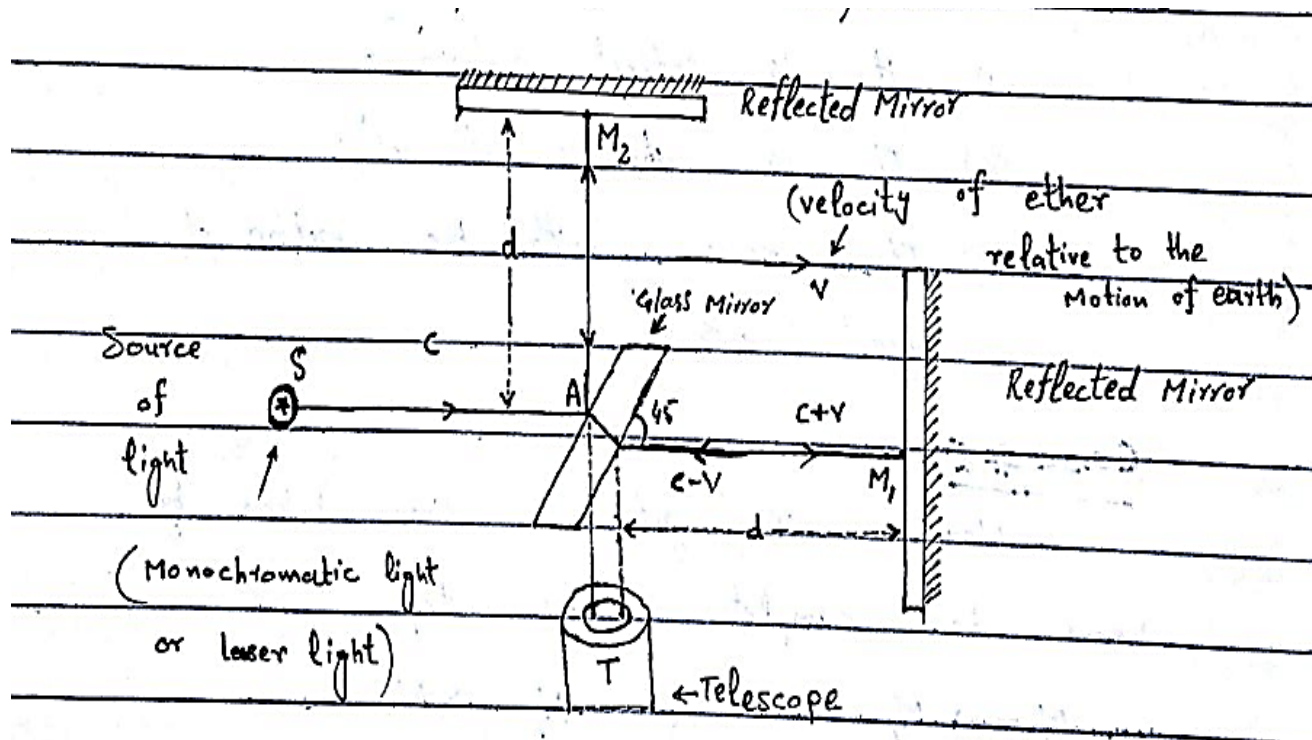 Reflected Mirror
M₂
(velocity of ether
relative to the
Motion of earth)
d
v
Glass Mirror
Source
of
light
S
C
A
45
c+v
Reflected Mirror
c-v
M₁
d
(Monochromatic light
or laser light)
T
←Telescope